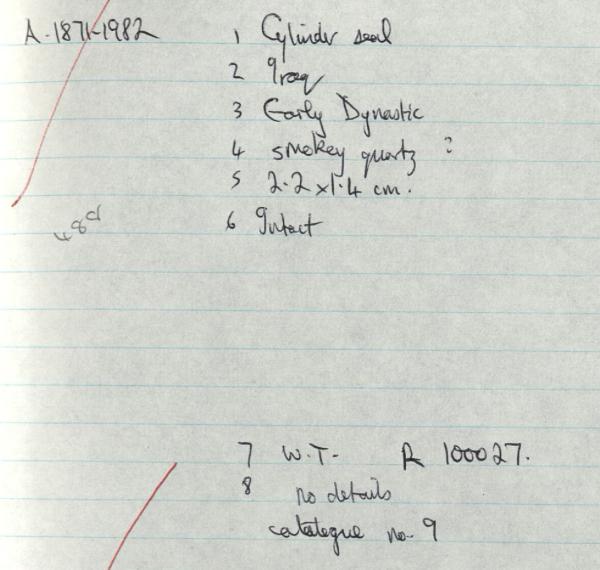 A.1871-1982
1 Cylinder seal
2 Iraq
3 Early Dynastic
4 smokey quartz ?
5 2.2 x 1.4 cm.
6 Intact
7 W.T. R 100027.
8 no details
catalogue no. 9